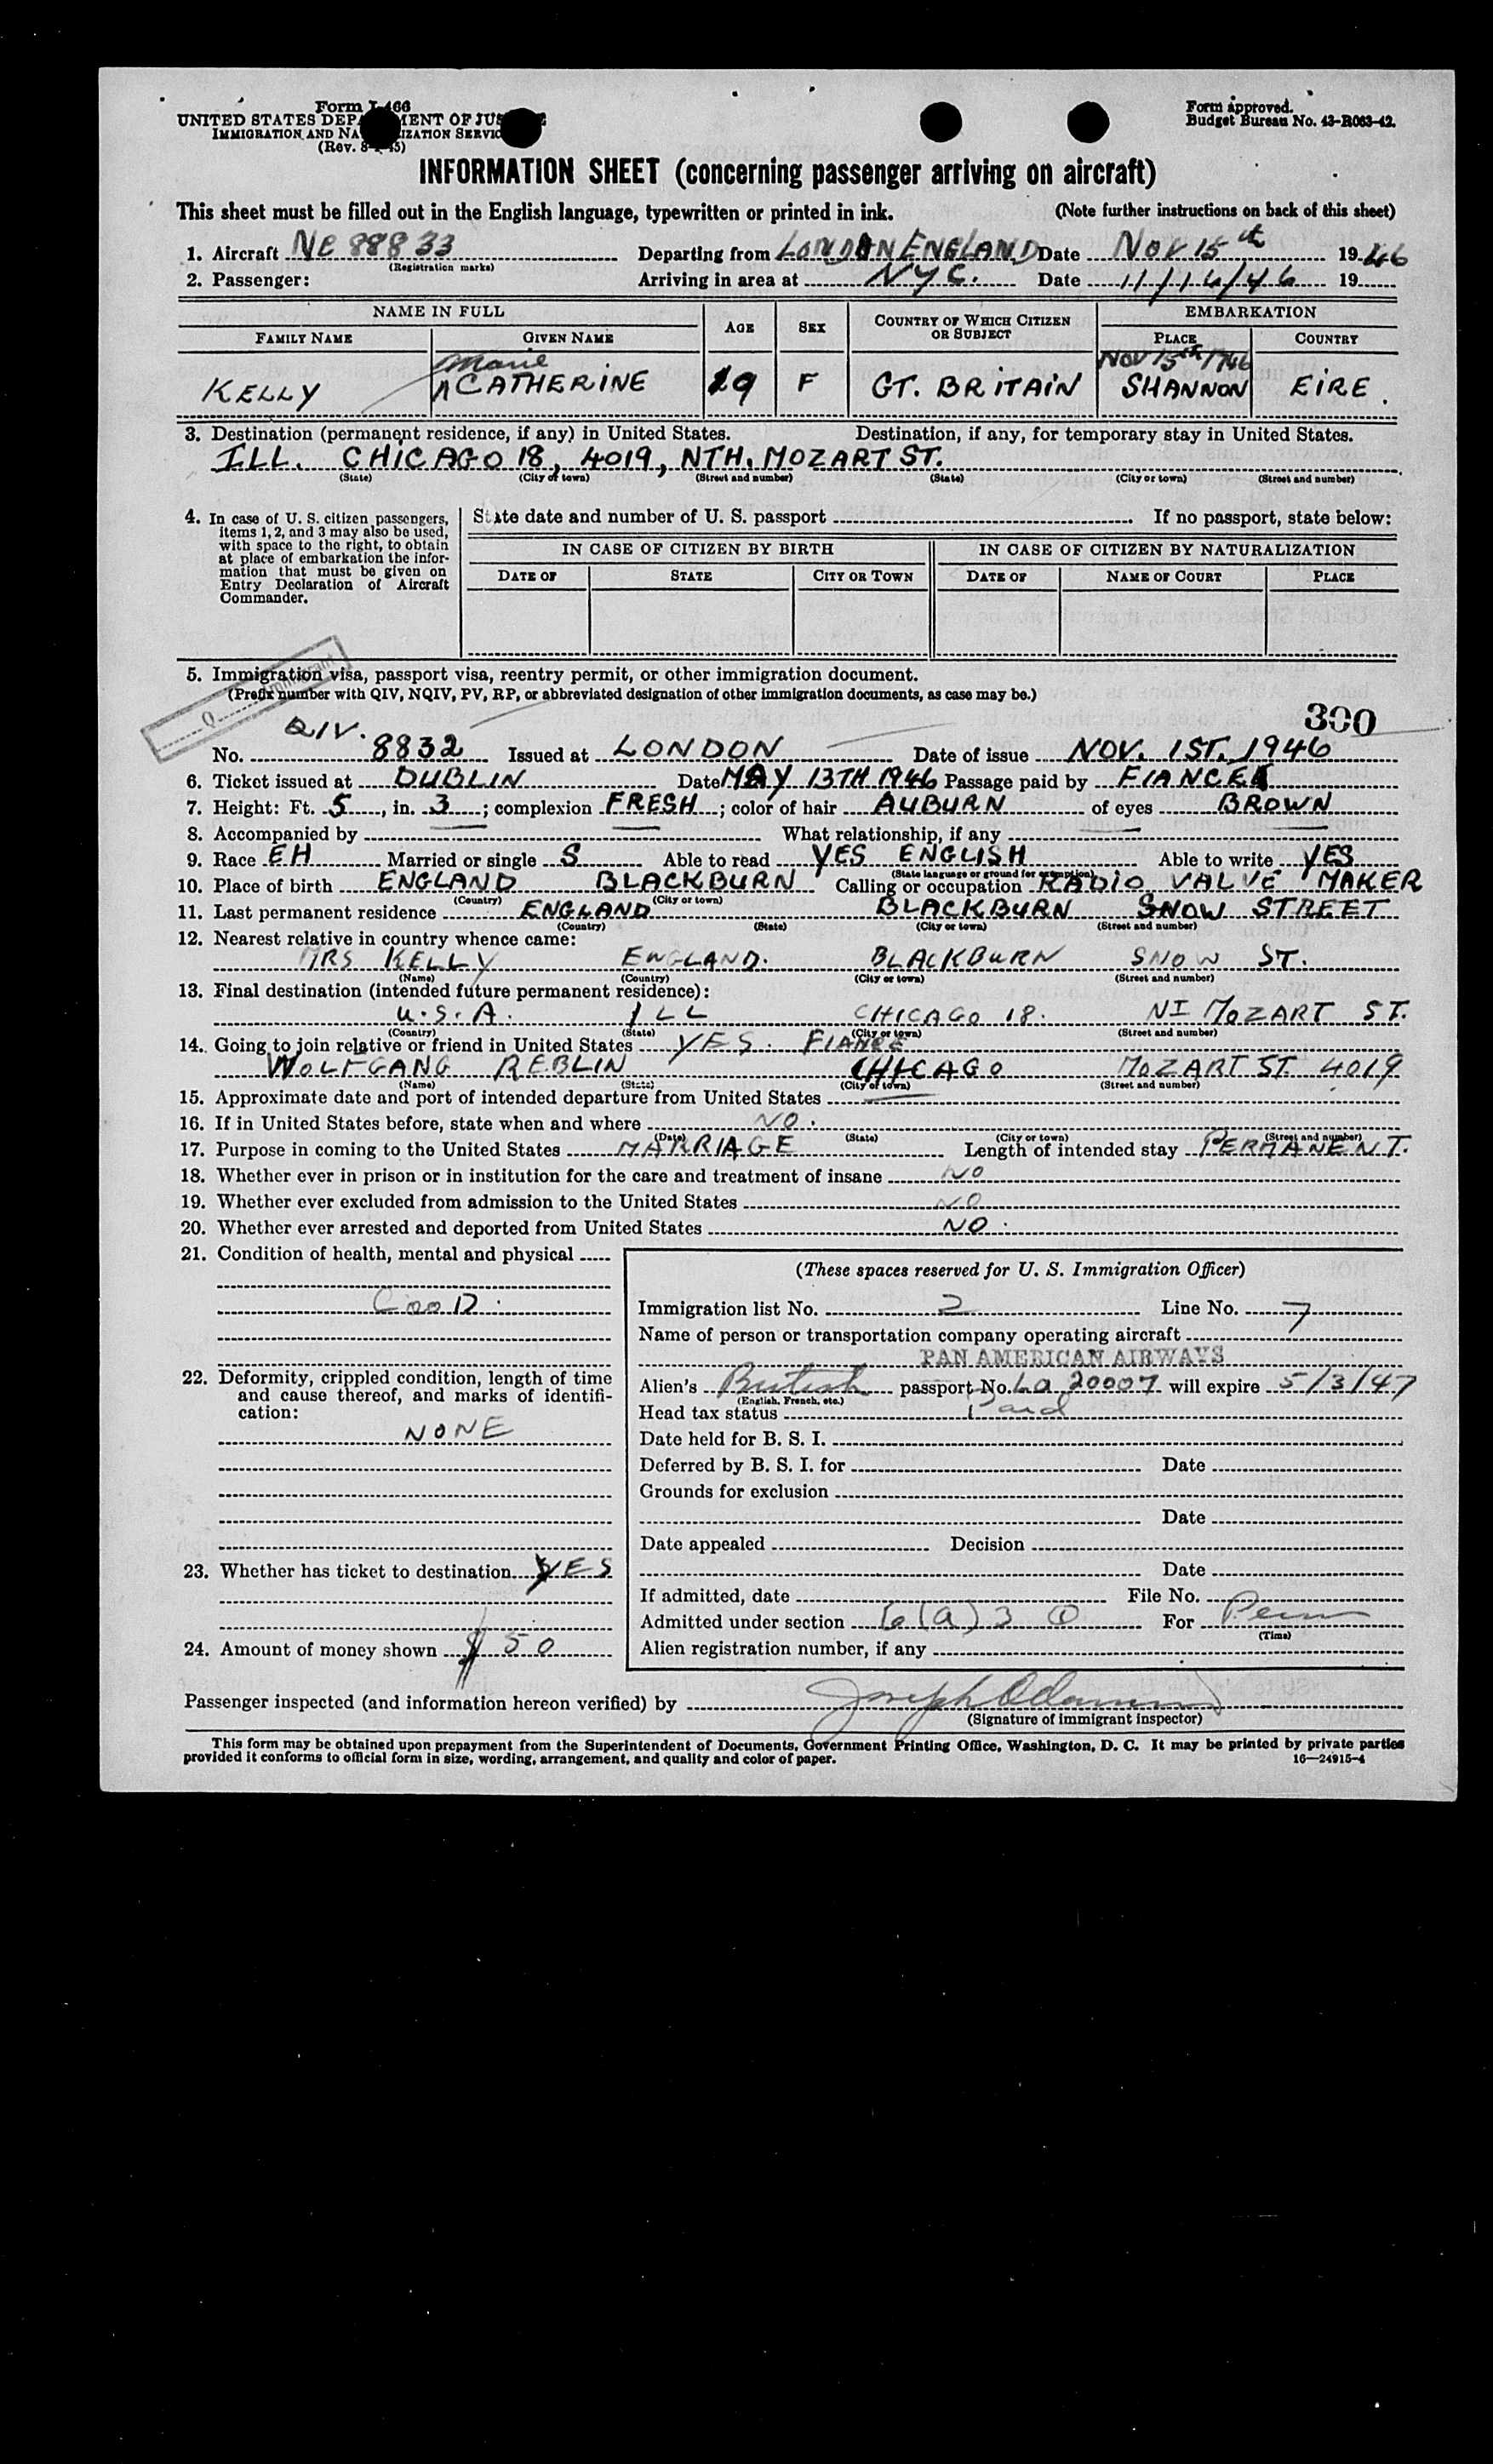 Form I-466
UNITED STATES DEPARTMENT OF JUSTICE
IMMIGRATION AND NATURALIZATION SERVICE
(Rev. 8-1-45)
Form approved.
Budget Bureau No. 43-R063-42.
INFORMATION SHEET (concerning passenger arriving on aircraft)
This sheet must be filled out in the English language, typewritten or printed in ink. (Note further instructions on back of this sheet)
1. Aircraft NC 88833 Departing from LONDON ENGLAND Date NOV 15th 1946
(Registration marks)
2. Passenger: Arriving in area at NYC. Date 11/16/46 19
NAME IN FULL AGE SEX COUNTRY OF WHICH CITIZEN OR SUBJECT EMBARKATION
FAMILY NAME GIVEN NAME PLACE COUNTRY
Marie NOV 15th 1946
KELLY CATHERINE 19 F GT. BRITAIN SHANNON EIRE.
3. Destination (permanent residence, if any) in United States. Destination, if any, for temporary stay in United States.
ILL. CHICAGO 18, 4019, NTH. MOZART ST.
(State) (City or town) (Street and number) (State) (City or town) (Street and number)
4. In case of U. S. citizen passengers, items 1, 2, and 3 may also be used, with space to the right, to obtain at place of embarkation the information that must be given on Entry Declaration of Aircraft Commander.
State date and number of U. S. passport If no passport, state below:
IN CASE OF CITIZEN BY BIRTH IN CASE OF CITIZEN BY NATURALIZATION
DATE OF STATE CITY OR TOWN DATE OF NAME OF COURT PLACE
5. Immigration visa, passport visa, reentry permit, or other immigration document.
(Prefix number with QIV, NQIV, PV, RP, or abbreviated designation of other immigration documents, as case may be.)
Q Immigrant
300
QIV.
No. 8832 Issued at LONDON Date of issue NOV. 1ST. 1946
6. Ticket issued at DUBLIN Date MAY 13TH 1946 Passage paid by FIANCE
7. Height: Ft. 5, in. 3; complexion FRESH; color of hair AUBURN of eyes BROWN
8. Accompanied by What relationship, if any
9. Race EH Married or single S Able to read YES ENGLISH Able to write YES
(State language or ground for exemption)
10. Place of birth ENGLAND BLACKBURN Calling or occupation RADIO VALVE MAKER
(Country) (City or town)
11. Last permanent residence ENGLAND BLACKBURN SNOW STREET
(Country) (State) (City or town) (Street and number)
12. Nearest relative in country whence came:
MRS KELLY ENGLAND. BLACKBURN SNOW ST.
(Name) (Country) (City or town) (Street and number)
13. Final destination (intended future permanent residence):
U.S.A. ILL CHICAGO 18. MOZART ST.
(Country) (State) (City or town) (Street and number)
14. Going to join relative or friend in United States YES. FIANCE
WOLFGANG REBLIN CHICAGO MOZART ST. 4019
(Name) (State) (City or town) (Street and number)
15. Approximate date and port of intended departure from United States
16. If in United States before, state when and where NO.
(Date) (State) (City or town) (Street and number)
17. Purpose in coming to the United States MARRIAGE Length of intended stay PERMANENT.
18. Whether ever in prison or in institution for the care and treatment of insane NO
19. Whether ever excluded from admission to the United States NO
20. Whether ever arrested and deported from United States NO.
21. Condition of health, mental and physical
GOOD.
22. Deformity, crippled condition, length of time and cause thereof, and marks of identification:
NONE
23. Whether has ticket to destination YES
24. Amount of money shown $50
(These spaces reserved for U. S. Immigration Officer)
Immigration list No. 2 Line No. 7
Name of person or transportation company operating aircraft
PAN AMERICAN AIRWAYS
Alien's British passport No. LO 20007 will expire 5/3/47
(English, French, etc.)
Head tax status Paid
Date held for B. S. I.
Deferred by B. S. I. for Date
Grounds for exclusion
Date
Date appealed Decision
Date
If admitted, date File No.
Admitted under section 6(a)3 For Perm
(Time)
Alien registration number, if any
Passenger inspected (and information hereon verified) by Joseph
(Signature of immigrant inspector)
This form may be obtained upon prepayment from the Superintendent of Documents, Government Printing Office, Washington, D. C. It may be printed by private parties
provided it conforms to official form in size, wording, arrangement, and quality and color of paper. 16—24915-4